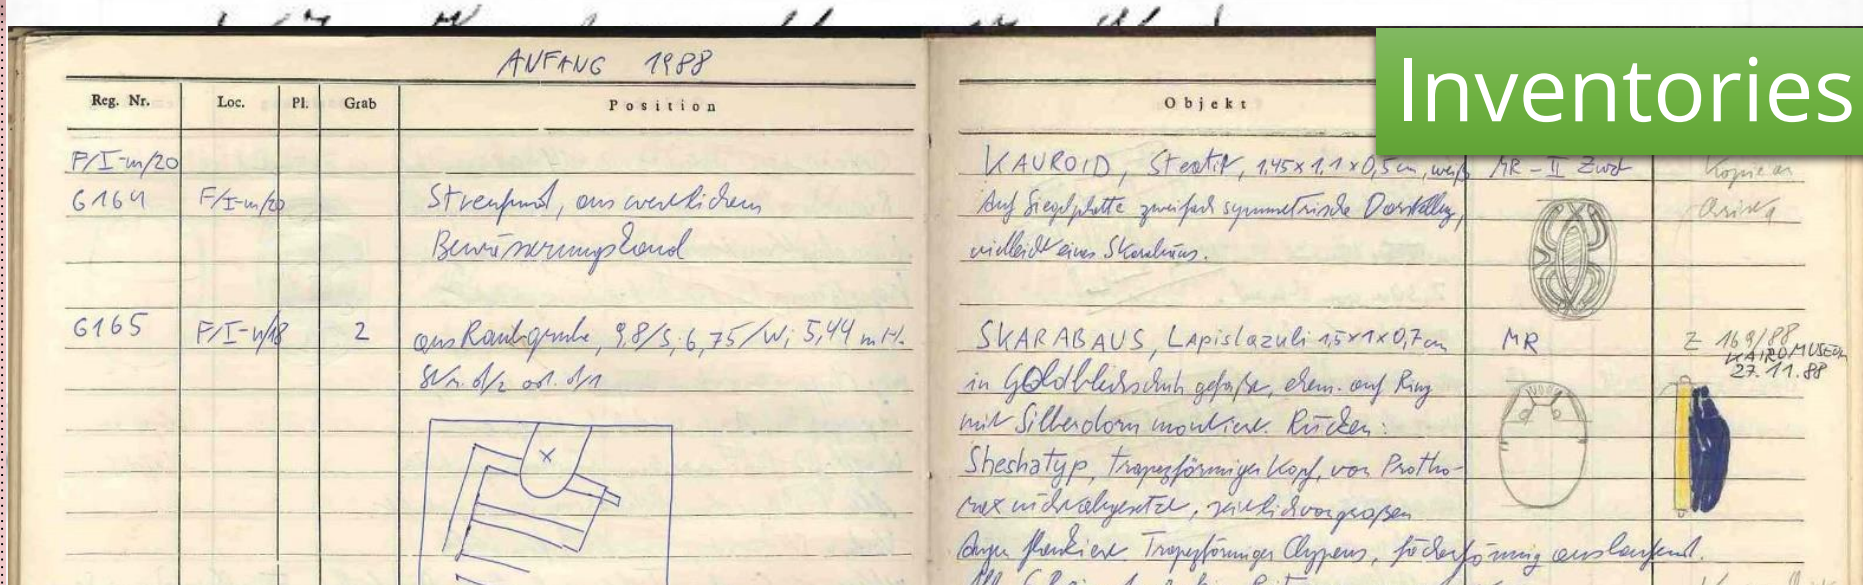 Inventories
ANFANG 1988
Reg. Nr. Loc. Pl. Grab Position Objekt
F/I-m/20
6164 F/I-m/20 Streufund, aus westlichem
Bewässerungskanal
KAUROID, Steatit, 1,45x1,1x0,5cm, weiß MR - II Zwzt Kopie an
Auf Siegelplatte zweifach symmetrische Darstellung,
vielleicht eines Skarabäus.
6165 F/I-n/18 2 aus Raubgrube, 9,8/S; 6,75/W; 5,44 m H.
SKARABAUS, Lapislazuli 1,5x1x0,7cm MR Z 169/88
KAIRO MUSEUM
27.11.88
in Goldblechschuh gefaßt, ehem. auf Ring
mit Silberdorn montiert. Rücken:
Sheshatyp, trapezförmiger Kopf, von Protho-
rax nicht abgesetzt, seitlich von großen
Augen flankiert Trapezförmiger Clypeus, förderförmig auslaufend.